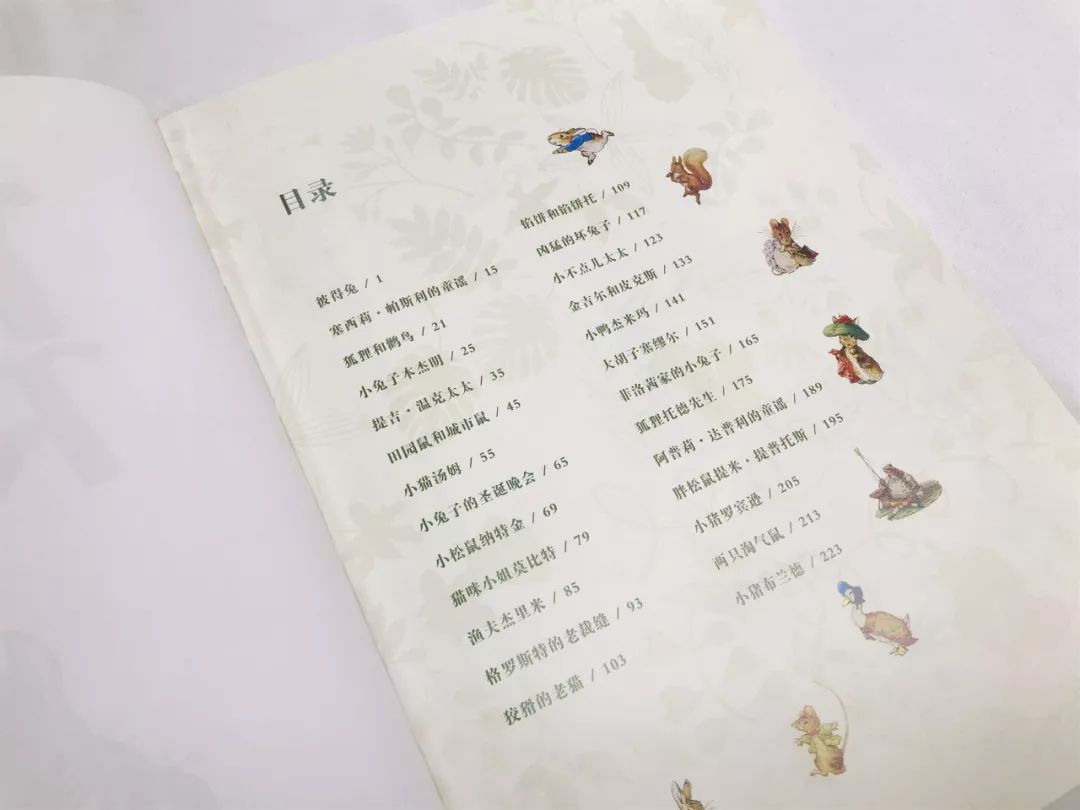 目录
彼得兔 / 1
塞西莉·帕斯利的童谣 / 15
狐狸和鹳鸟 / 21
小兔子本杰明 / 25
提吉·温克太太 / 35
田园鼠和城市鼠 / 45
小猫汤姆 / 55
小兔子的圣诞晚会 / 65
小松鼠纳特金 / 69
猫咪小姐莫比特 / 79
渔夫杰里米 / 85
格罗斯特的老裁缝 / 93
狡猾的老猫 / 103
馅饼和馅饼托 / 109
凶猛的坏兔子 / 117
小不点儿太太 / 123
金吉尔和皮克斯 / 133
小鸭杰米玛 / 141
大胡子塞缪尔 / 151
菲洛茜家的小兔子 / 165
狐狸托德先生 / 175
阿普莉·达普利的童谣 / 189
胖松鼠提米·提普托斯 / 195
小猪罗宾逊 / 205
两只淘气鼠 / 213
小猪布兰德 / 223